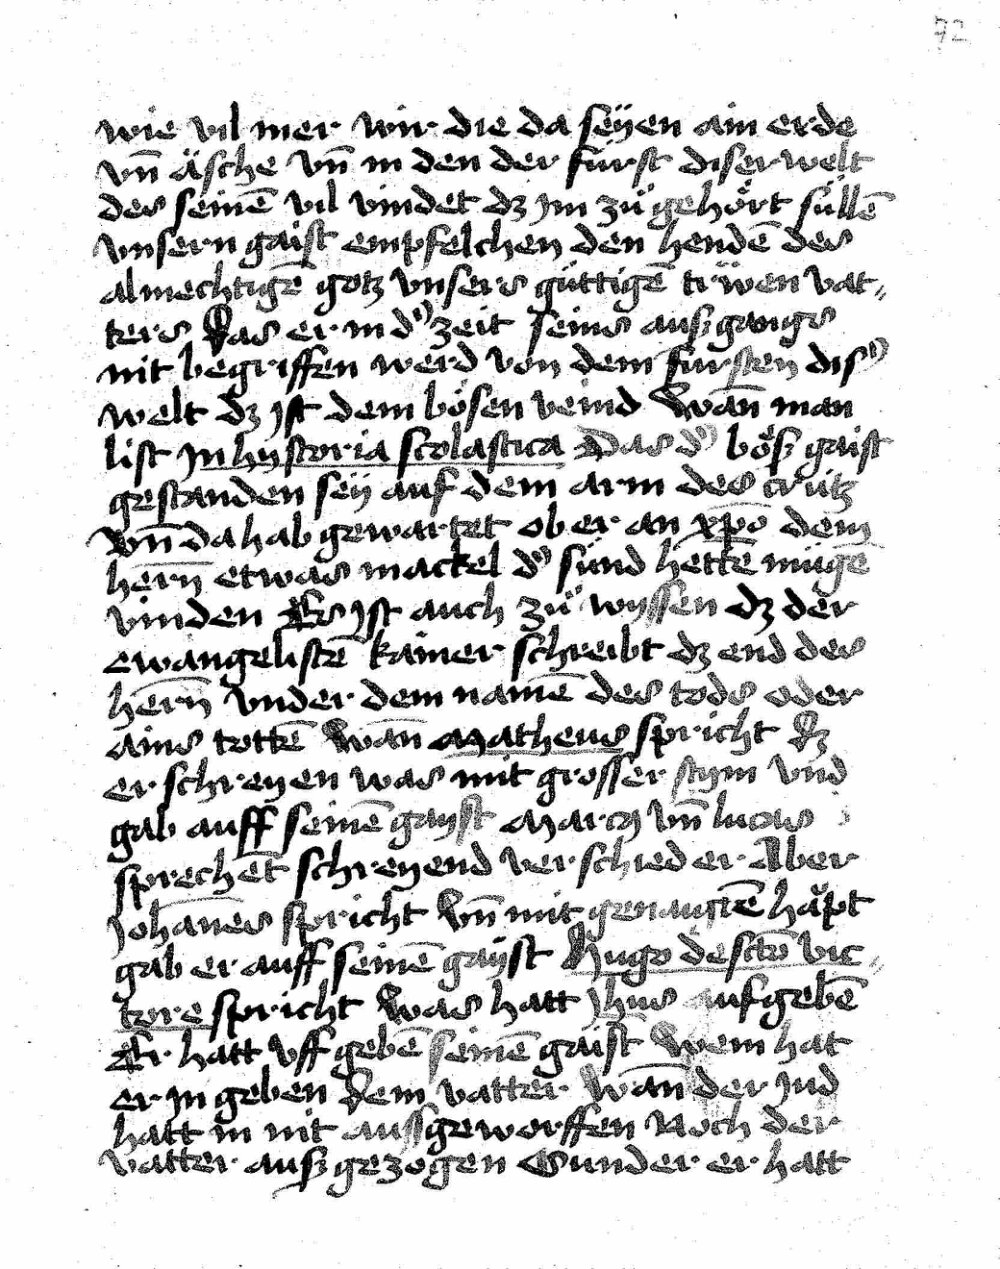 72
wie vil mer wir die da seÿen ain erde
vn̄ äsche vn̄ in den der fürst diser welt
des seinē vil vindet dz im zuͦ gehoͤrt süllē
vnsern gaist empfelchen den hendē des
almechtigē gotz vnsers güttigē trüwen vat„
ters Das er in d' zeit seins ausz gangs
nit begriffen werd von dem fürsten dis'
welt dz ist dem bösen veind Wān man
list in hystoria scolastica Das d' boͤsz gaist
gestanden seÿ auf dem arm des crütz
Vn̄ da hab gewartet ob er an xp̄o dem
hern̄ etwas mackel d' sünd hettē mügē
vinden Es ist auch zuͦ wyssen dz der
ewangelistē kainer schreibt dz end des
hern̄ vnder dem namē des tods oder
ains tottē Wān Matheus spricht Dz
er schreyen was mit grosser stym vnd
gab auff seinē gayst Marcꝰ vn̄ lucas
sprechēt schreyend verschied er Aber
Johānes spricht Vn̄ mit genaigtē häpt
gab er auff seinē gaÿst Hugo de sctō vic„
tore spricht Was hatt jhus aufgebē
Er hatt vff gebē seinē gaist Wem hat
er in geben Dem vatter Wān der jud
hatt in nit aussgeworffen Noch der
vatter ausz gezogen Sunder er hatt